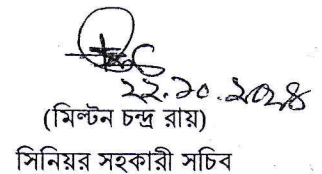 ২২.১০.২০২৪
(মিল্টন চন্দ্র রায়)
সিনিয়র সহকারী সচিব